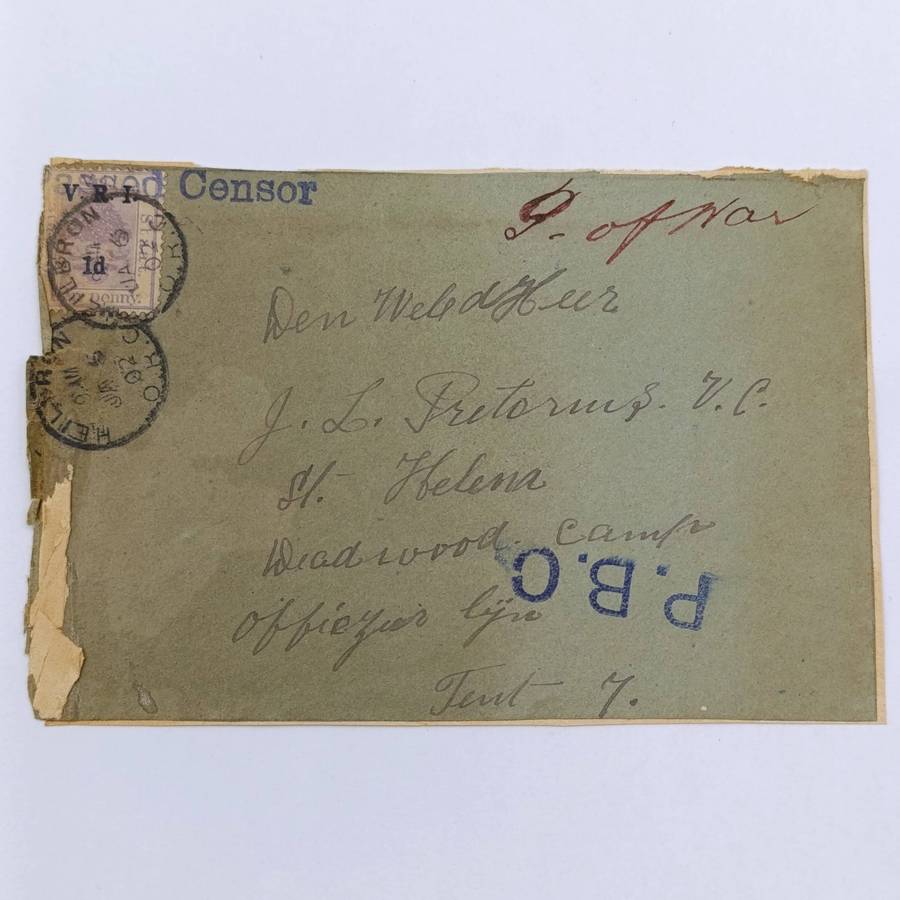 assed Censor
V.R.I.
1d
penny.
HEILBRON O.R.C
JA 6
02
HEILBRON O.R.C
JA 6
02
P. of War
Den WeledHeer
J. L. Pretorius. V.C.
St. Helena
Deadwood. Camp
Officzier lijn
Tent 7.
P.B.C